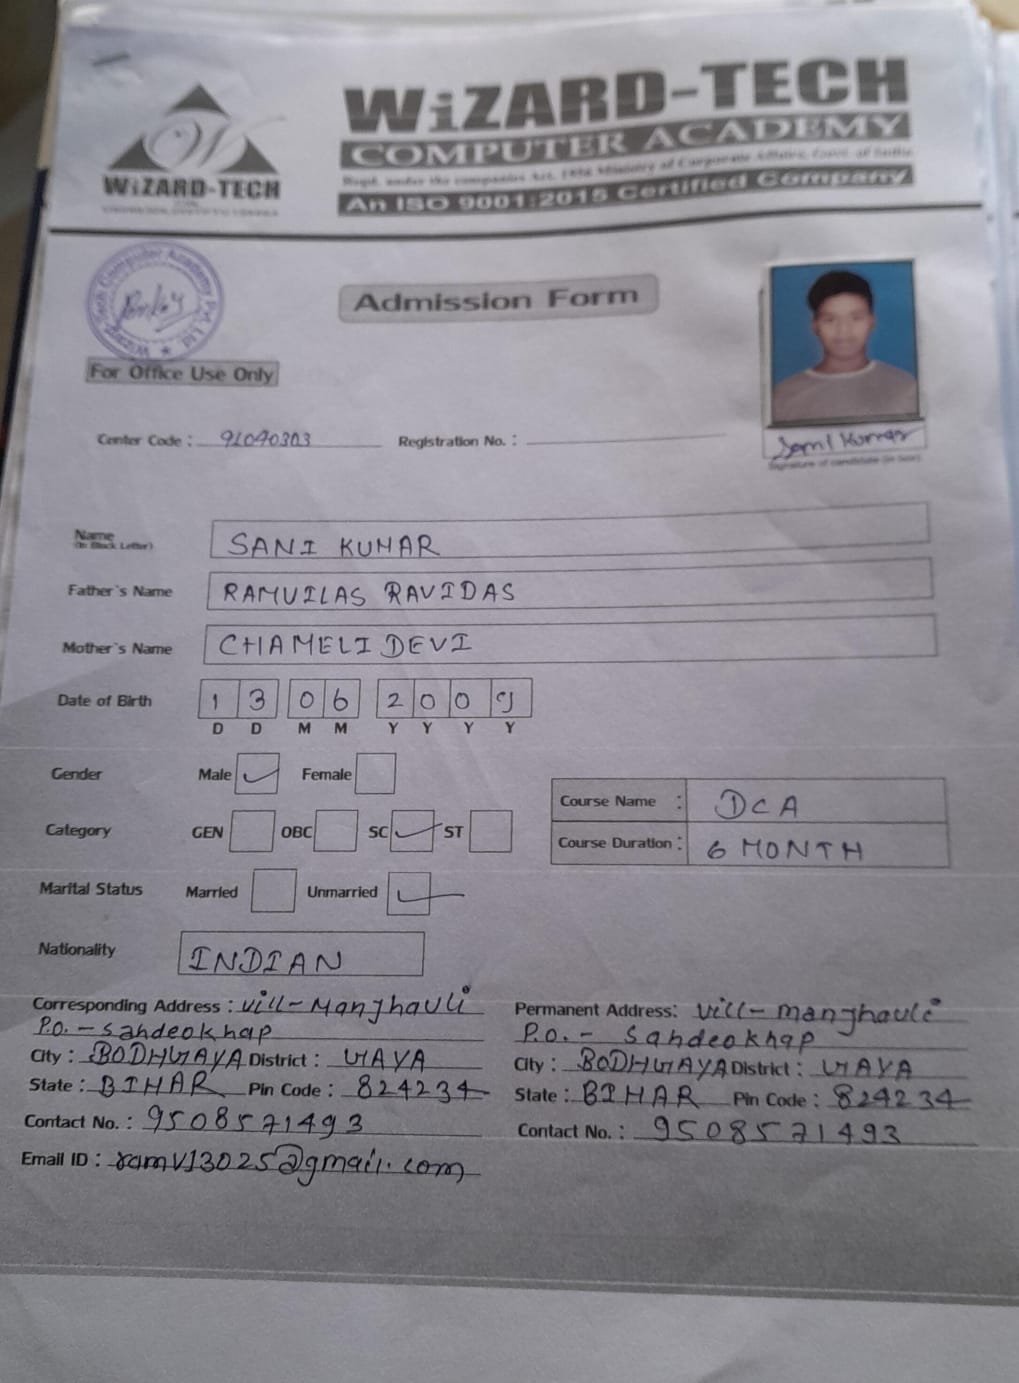 WiZARD-TECH
COMPUTER ACADEMY
Regd. under the companies Act, 1956 Ministry of Corporate Affairs, Govt. of India
An ISO 9001:2015 Certified Company
W
WiZARD-TECH
Wizard Tech Computer Academy Pvt. Ltd.
Admission Form
For Office Use Only
Center Code : 91090303 Registration No. :
Sani Kumar
Signature of candidate (in box)
Name SANI KUMAR
(In Block Letter)
Father's Name RAMVILAS RAVIDAS
Mother's Name CHAMELI DEVI
Date of Birth 13 06 2009
D D M M Y Y Y Y
Gender Male Female
Course Name : DCA
Category GEN OBC SC ST
Course Duration : 6 MONTH
Marital Status Married Unmarried
Nationality INDIAN
Corresponding Address : Vill-Manjhauli
P.O. - Sahdeokhap
City : BODHGAYA District : GAYA
State : BIHAR Pin Code : 824234
Contact No. : 9508571493
Email ID : ramv13025@gmail.com
Permanent Address: Vill- manjhauli
P.O. - Sahdeokhap
City : BODHGAYA District : GAYA
State : BIHAR Pin Code : 824234
Contact No. : 9508571493